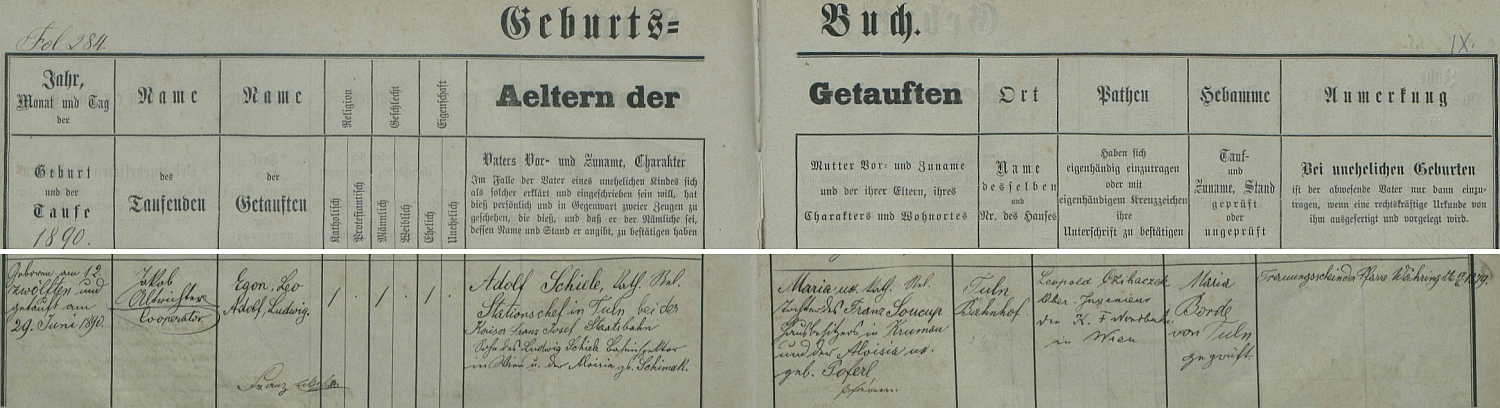 Fol 284.
Geburts=
Buch.
IX.
Jahr,
Monat und Tag
der
Name
Name
Religion
Geschlecht
Eigenschaft
Aeltern der
Getauften
Ort
Pathen
Hebamme
Anmerkung
Geburt
und der
Taufe
1890.
des
Taufenden
der
Getauften
Katholisch
Protestantisch
Männlich
Weiblich
Ehelich
Unehelich
Vaters Vor- und Zuname, Charakter
Im Falle der Vater eines unehelichen Kindes sich
als solcher erklärt und eingeschrieben sein will,
dieß persönlich und in Gegenwart zweier Zeugen zu
geschehen, die dieß, und daß er der Nämliche sei,
dessen Name und Stand er angibt, zu bestätigen haben
Mutter Vor- und Zuname
und der ihrer Eltern, ihres
Charakters und Wohnortes
Name
desselben
und
Nr. des Hauses
Haben sich
eigenhändig einzutragen
oder mit
eigenhändigem Kreuzzeichen
ihre
Unterschrift zu bestätigen
Tauf-
und
Zuname, Stand
geprüft
oder
ungeprüft
Bei unehelichen Geburten
ist der abwesende Vater nur dann einzu-
tragen, wenn eine rechtskräftige Urkunde von
ihm ausgefertigt und vorgelegt wird.
Geboren am 12
zwölften und
getauft am
29. Juni 1890.
Jakob
Altrichter
Cooperator
Egon. Leo
Adolf, Ludwig.
Franz
/ . / . / .
Adolf Schiele, kath. Rel.
Stationschef in Tuln bei der
Kaiser Franz Josef Staatsbahn
Sohn des Ludwig Schiele Bahninspektor
in Wien u. der Aloisia gb. Schimak.
Maria ux. kath. Rel.
Tochter des Franz Soucup
Hausbesitzers in Krumau
und der Aloisia ux.
geb. Poferl
Tuln
Bahnhof.
Leopold Czihaczek
Ober-Ingenieur
der K. F Nordbahn
in Wien
Maria
Borde
von Tuln
geprüft.
Trauungsschein der Pfarre Währing
1879.